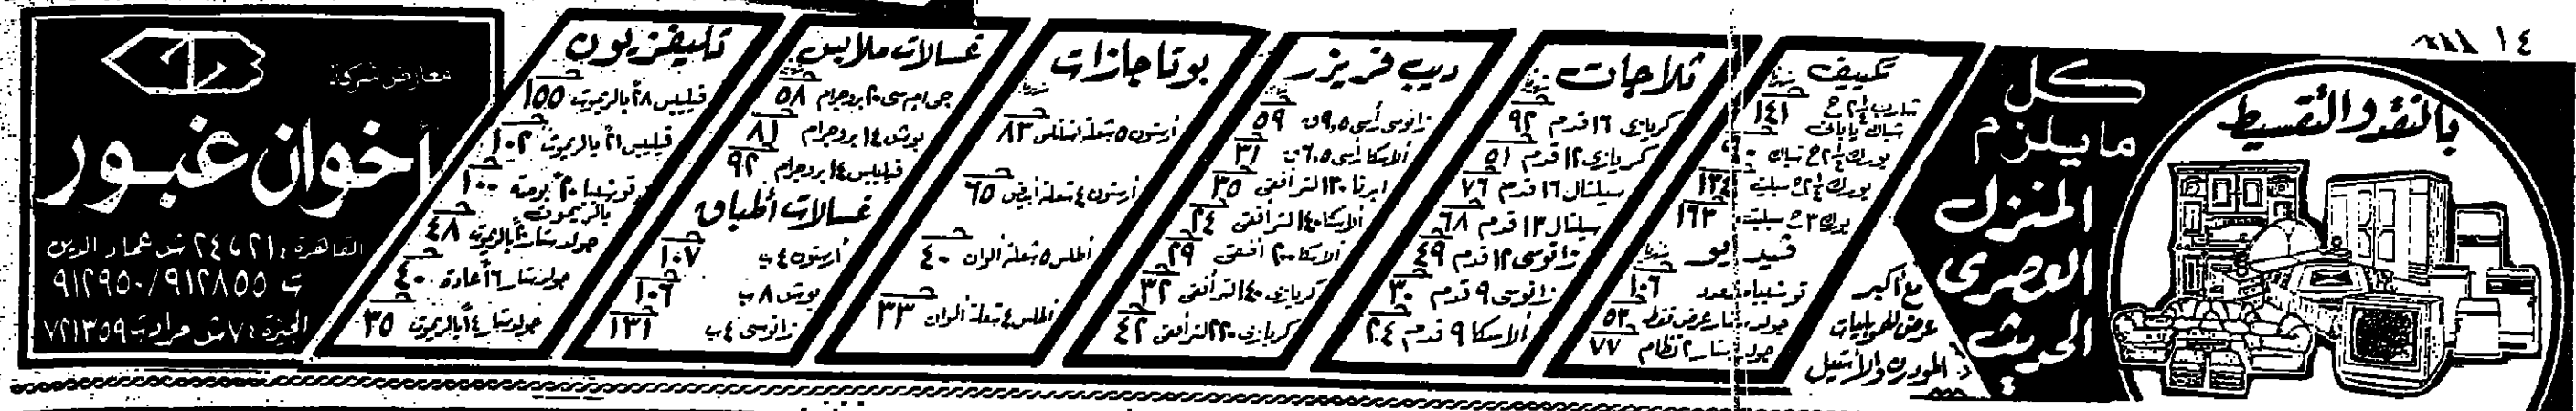 ١٤
بالنقد والتقسيط
كل
ما يلزم
المنزل
العصرى
الحديث
مع أكبر
عرض للموبيليات
المودرن والأستيل
تكييف
شارب ١/٢ ٢ ح
شباك يابانى ١٤١
يورك ١/٢ ٢ ح شباك
يورك ١/٢ ٢ ح سبليت ١٣٤
يورك ٣ ح سبليت ١٦٣
فيديو
توشيبا ١٠٦
جولد ستار عرض فقط ٥٣
جولد ستار ٢ نظام ٧٧
ثلاجات
كريازى ١٦ قدم ٩٢
كريازى ١٢ قدم ٥١
سيلتال ١٦ قدم ٧٦
سيلتال ١٣ قدم ٦٨
زانوسى ١٢ قدم ٤٩
زانوسى ٩ قدم ٣٠
ألاسكا ٩ قدم ٢٤
ديب فريزر
زانوسى رأسى ٩,٥ ق ٥٩
ألاسكا رأسى ٦,٥ ق ٣١
ايرنا ١٣٠ لتر أفقى ٣٥
ألاسكا ١٤٠ لتر أفقى ٢٤
ألاسكا ٢٠٠ أفقى ٢٩
كريازى ١٤٠ لتر أفقى ٣٢
كريازى ٢٢٠ لتر أفقى ٤٢
بوتاجازات
أرستون ٥ شعلة استانلس ٨٣
أرستون ٤ شعلة أبيض ٦٥
أطلس ٥ شعلة ألوان ٤٠
أطلس ٤ شعلة ألوان ٣٣
غسالات ملابس
جى ام سى ٢٠ بروجرام ٥٨
بوش ١٤ بروجرام ٨١
فيليبس ١٤ بروجرام ٩٢
غسالات أطباق
أرستون ٤ ب ١٠٧
بوش ٨ ب ١٠٦
زانوسى ٤ ب ١٣١
تليفزيون
فيليبس ٢٨ بالريموت ١٥٥
فيليبس ٢١ بالريموت ١٠٢
توشيبا ٢٠ بوصة ١٠٠
بالريموت
جولد ستار ٢٠ بالريموت ٤٨
جولد ستار ١٦ عادة ٤٠
جولد ستار ١٤ بالريموت ٣٥
معارض شركة
أخوان غبور
القاهرة : ٢١ ، ٢٤ ش عماد الدين
ت ٩١٢٨٥٥ / ٩١٢٩٥٠
الجيزة : ٧ ش مراد ت ٧٢١٣٥٩